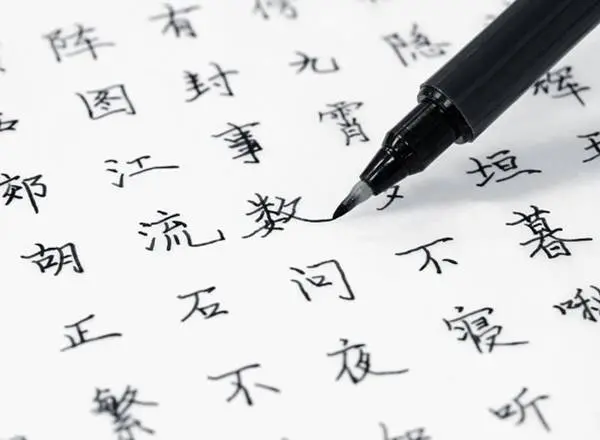 辉玉
隐垣暮啾
傍九霄不寝听
有封事数问夜
阵图江流石不
郊胡正繁